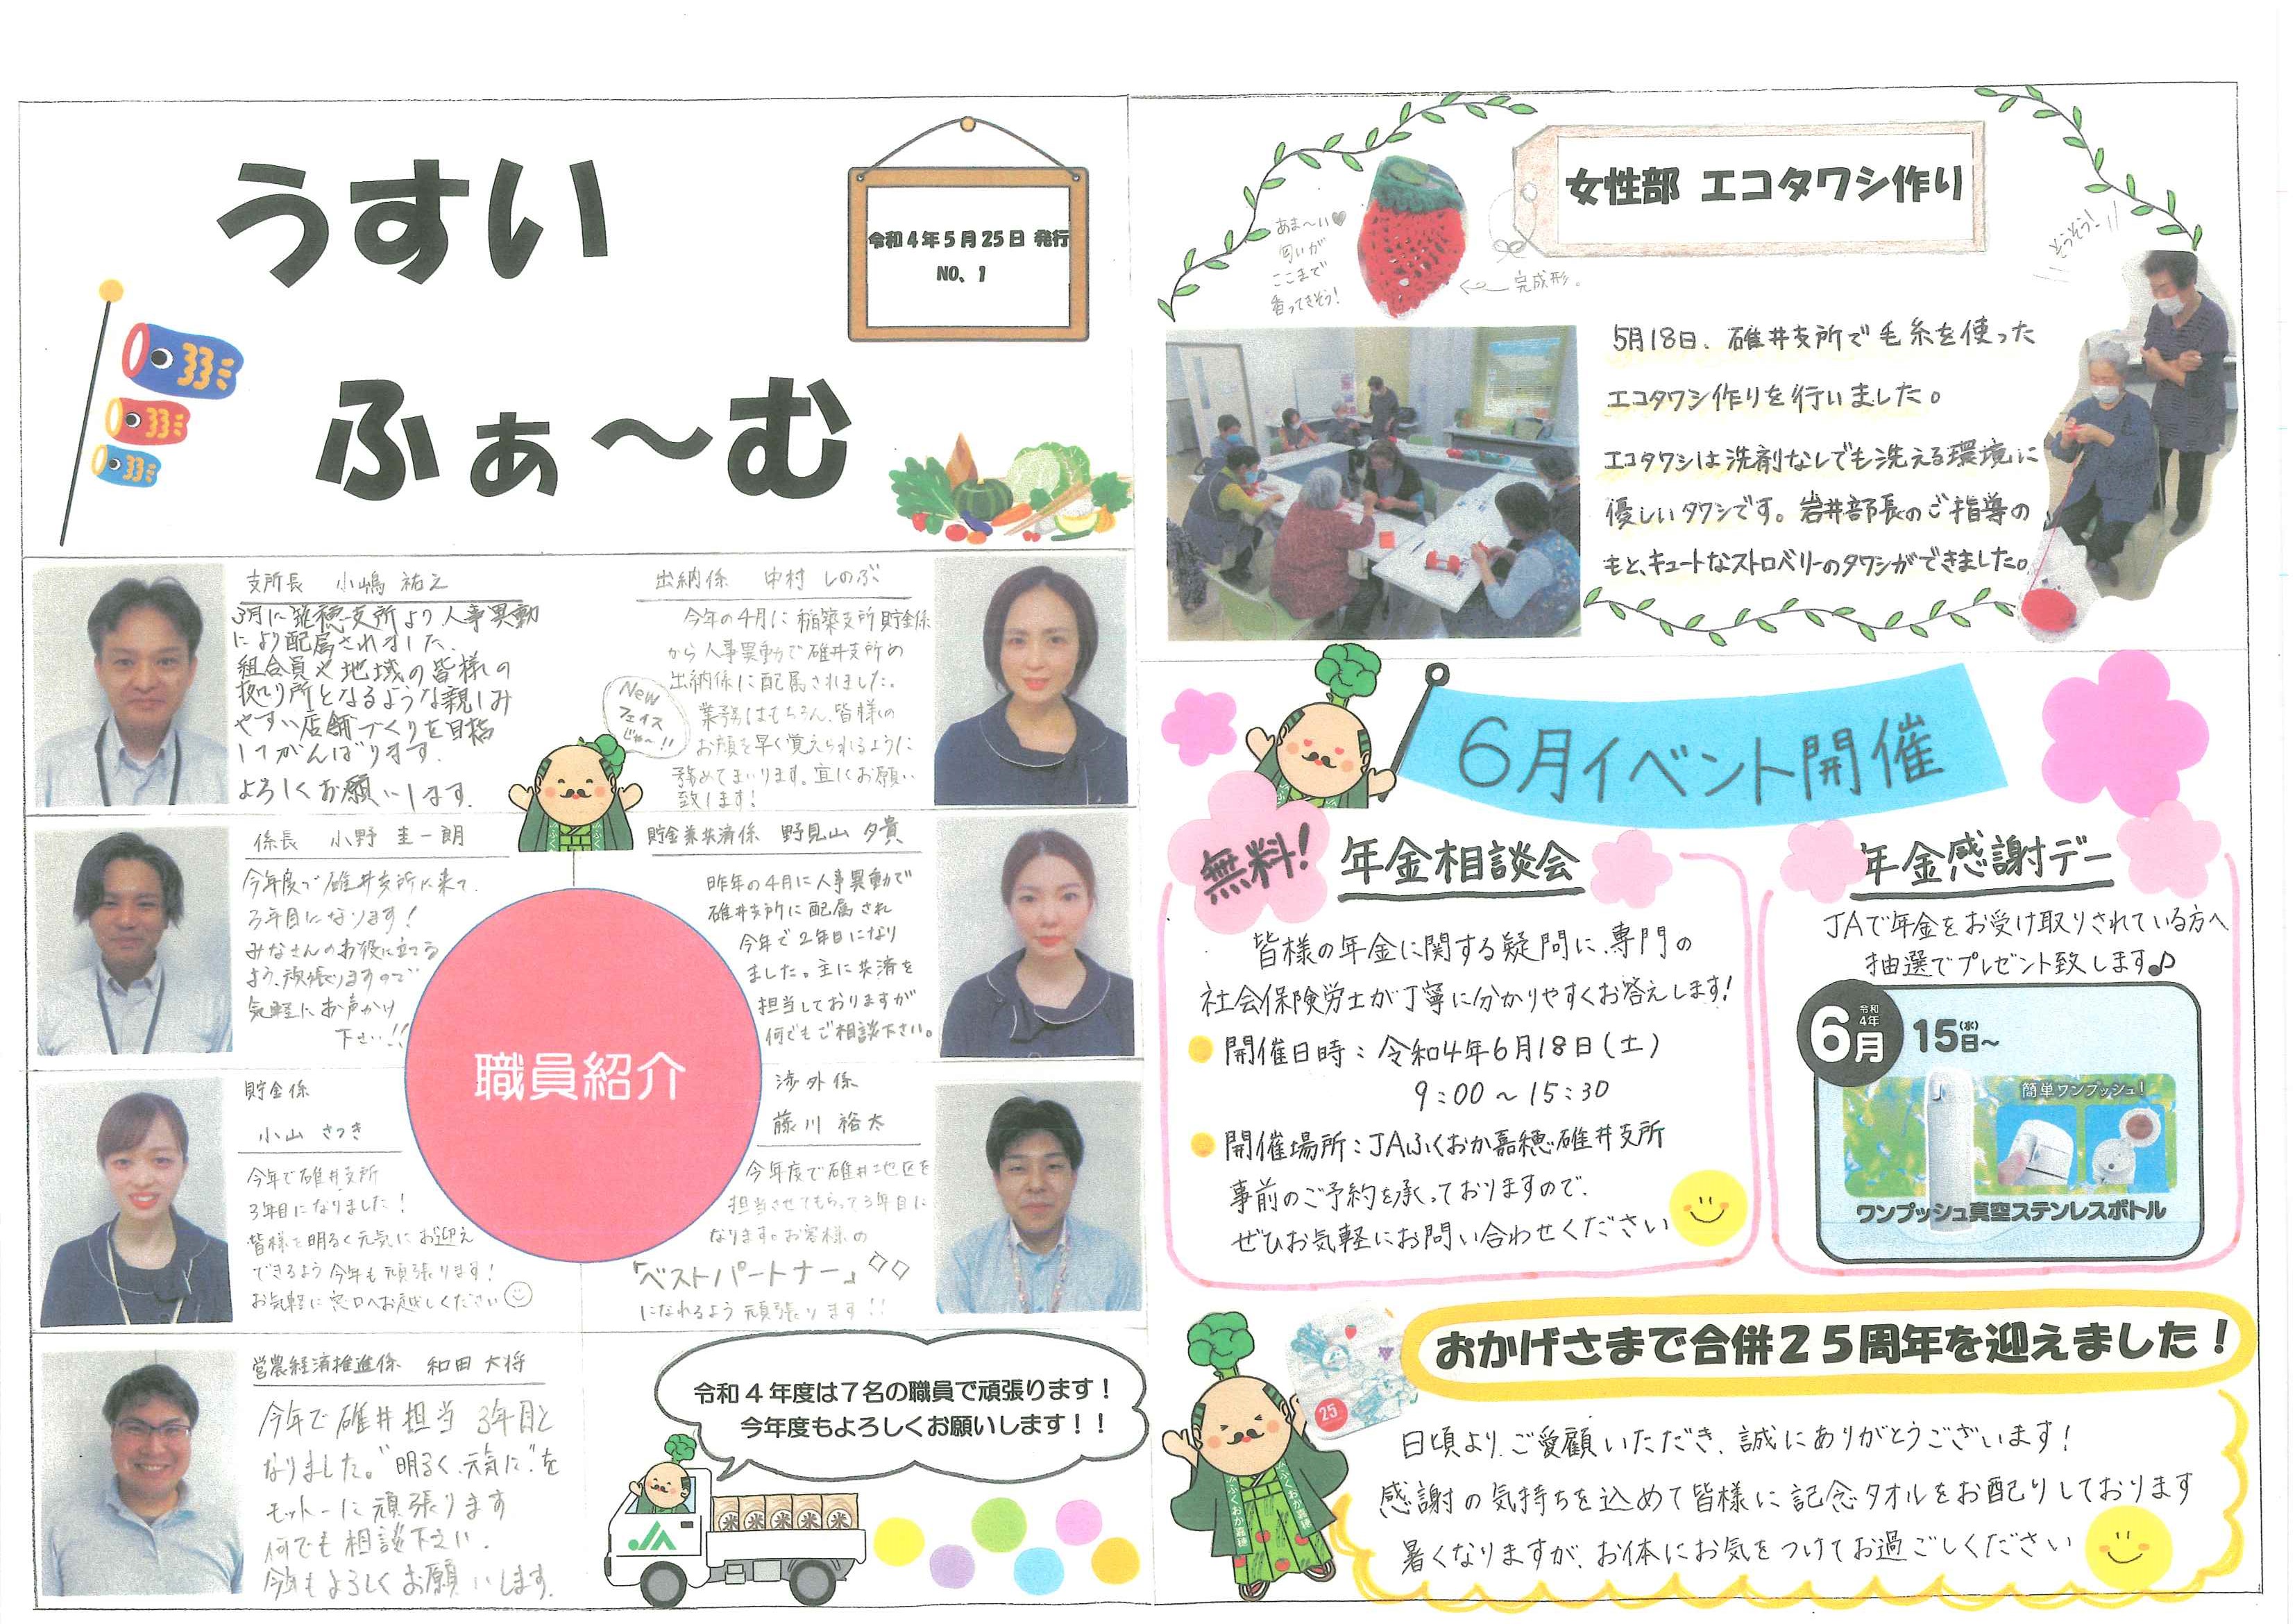 うすい
ふぁ～む
令和4年5月25日 発行
NO、1
支所長 小嶋 祐之
3月に筑穂支所より人事異動
により配属されました。
組合員や地域の皆様の
拠り所となるような親しみ
やすい店舗づくりを目指
してがんばります。
よろしくお願いします。
出納係 中村 しのぶ
今年の4月に稲築支所貯金係
から人事異動で碓井支所の
出納係に配属されました。
業務はもちろん、皆様の
お顔を早く覚えられるように
努めてまいります。宜しくお願い
致します!
New
フェイス
じゃ～!!
係長 小野 圭一朗
今年度で碓井支所に来て、
3年目になります!
みなさんのお役に立てる
よう、頑張りますので
気軽にお声かけ
下さい!!
貯金兼共済係 野見山 夕貴
昨年の4月に人事異動で
碓井支所に配属され
今年で2年目になり
ました。主に共済を
担当しておりますが
何でもご相談下さい。
職員紹介
貯金係
小山 さつき
今年で碓井支所
3年目になりました!
皆様を明るく元気にお迎え
できるよう今年も頑張ります!
お気軽に窓口へお越しください
渉外係
藤川 裕太
今年度で碓井地区を
担当させてもらって3年目に
なります。お客様の
「ベストパートナー」
になれるよう頑張ります!!
営農経済推進係 和田 大将
今年で碓井担当3年目と
なりました。"明るく、元気に"を
モットーに頑張ります
何でも相談下さい。
今年もよろしくお願いします。
令和4年度は7名の職員で頑張ります!
今年度もよろしくお願いします!!
JA
米 米 米 米 米
女性部 エコタワシ作り
あま～い♥
匂いが
ここまで
香ってきそう!
完成形。
そうそう!
5月18日、碓井支所で毛糸を使った
エコタワシ作りを行いました。
エコタワシは洗剤なしでも洗える環境に
優しいタワシです。岩井部長のご指導の
もと、キュートなストロベリーのタワシができました。
6月イベント開催
無料!
年金相談会
皆様の年金に関する疑問に、専門の
社会保険労士が丁寧に分かりやすくお答えします!
開催日時:令和4年6月18日(土)
9:00～15:30
開催場所:JAふくおか嘉穂碓井支所
事前のご予約を承っておりますので、
ぜひお気軽にお問い合わせください
年金感謝デー
JAで年金をお受け取りされている方へ
抽選でプレゼント致します♪
令和
4年
6月
15日(水)～
簡単ワンプッシュ!
ワンプッシュ真空ステンレスボトル
おかげさまで合併25周年を迎えました!
25
日頃より、ご愛顧いただき、誠にありがとうございます!
感謝の気持ちを込めて皆様に記念タオルをお配りしております
暑くなりますが、お体にお気をつけてお過ごしください
ふくおか嘉穂
ふくおか嘉穂